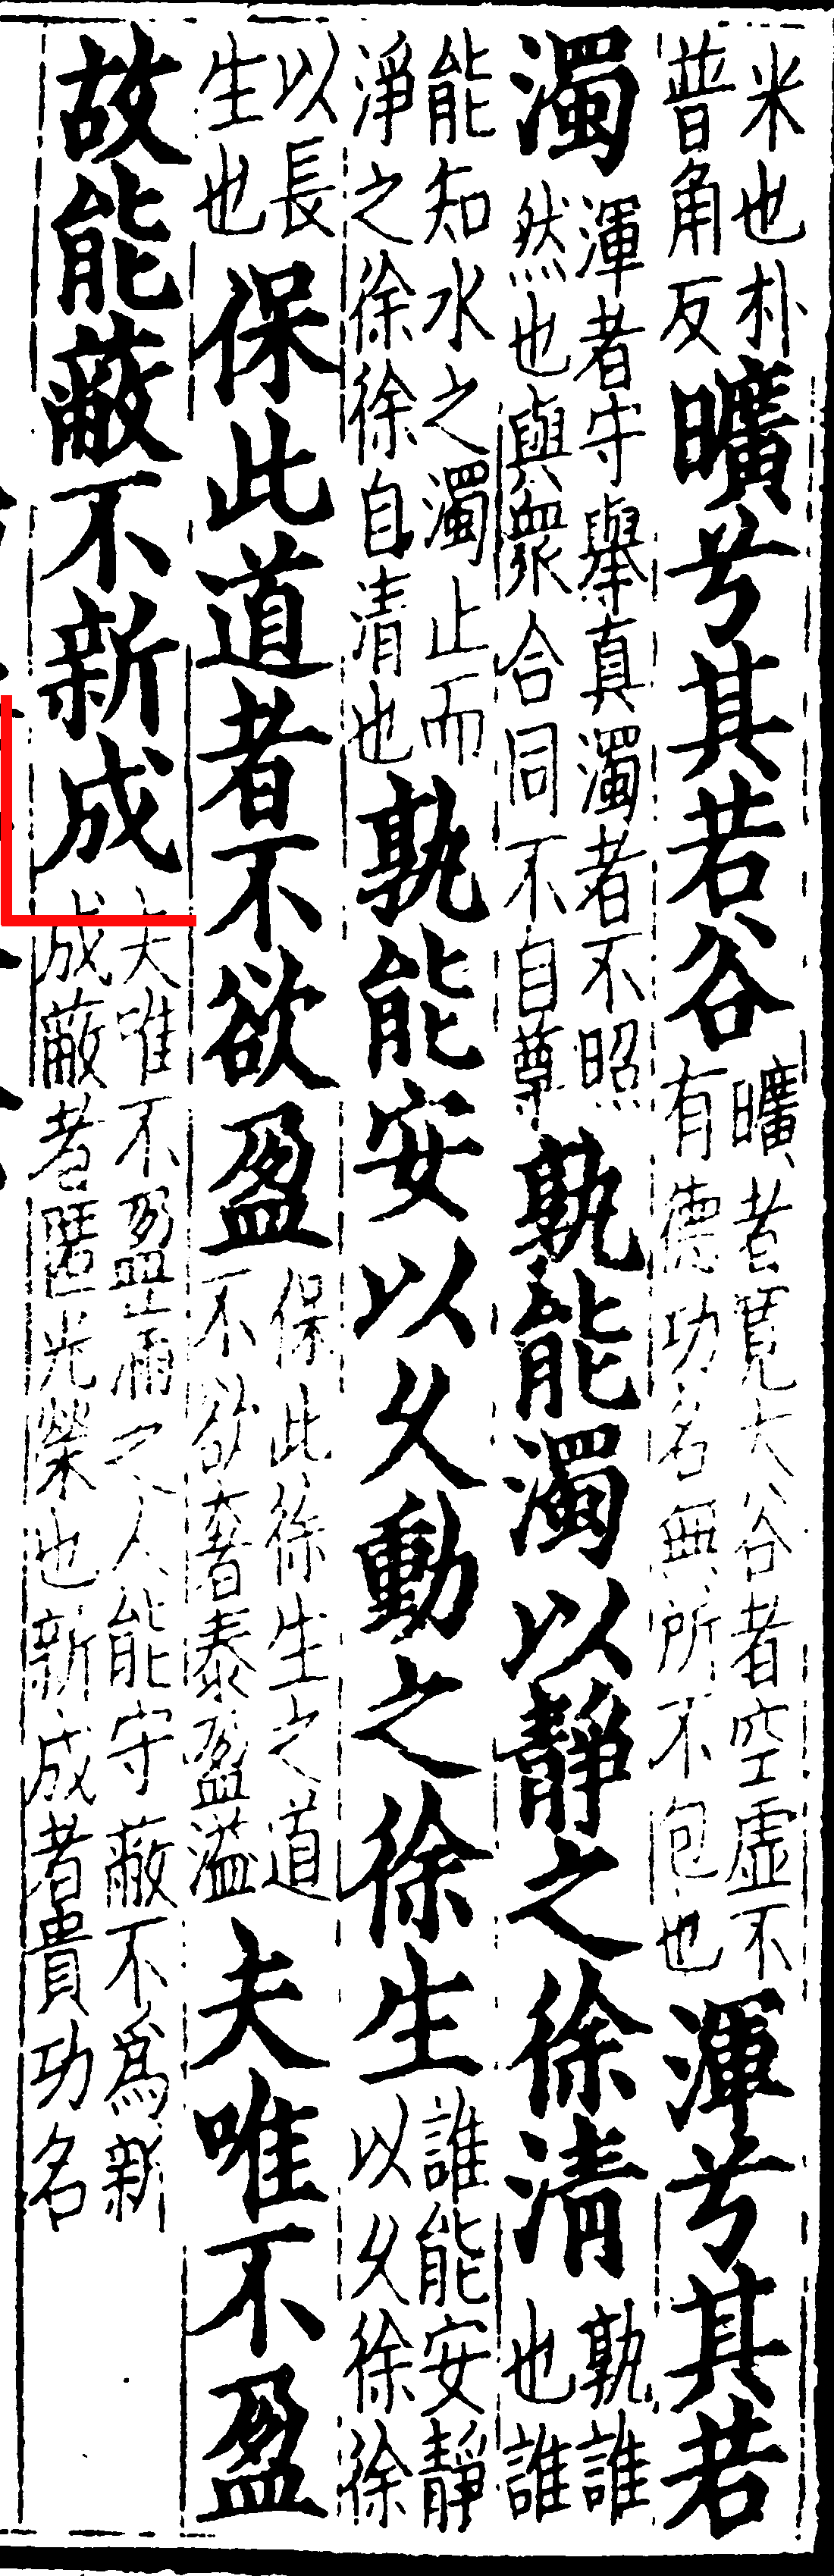 米也朴普角反曠兮其若谷曠者寬大谷者空虛不有德功名無所不包也渾兮其若
濁渾者守舉真濁者不照然也與衆合同不自尊孰能濁以靜之徐清孰誰也誰
能知水之濁止而淨之徐徐自清也孰能安以久動之徐生誰能安靜以久徐徐
以長生也保此道者不欲盈保此徐生之道不欲奢泰盈溢夫唯不盈
故能蔽不新成夫唯不盈滿之人能守蔽不爲新成蔽者匿光榮也新成者貴功名